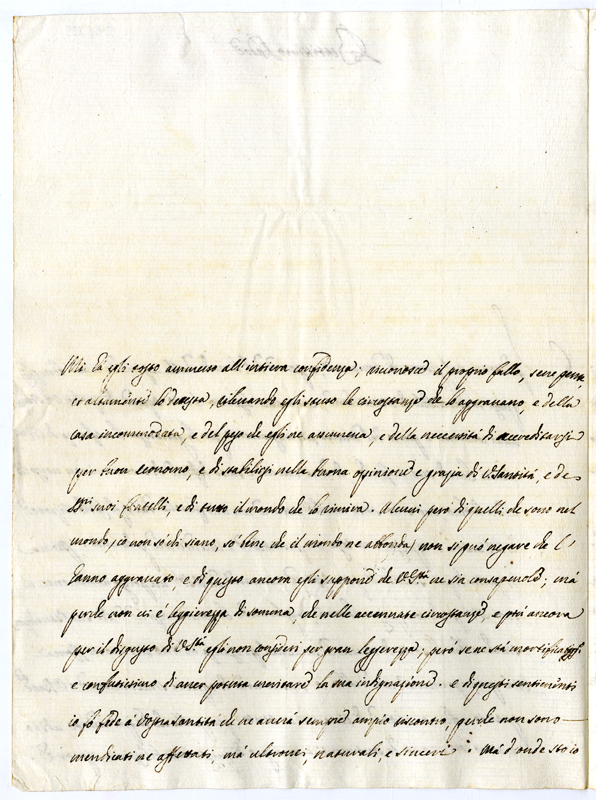 Mi hà egli tosto ammesso all'intiera confidenza; riconosce il proprio fallo, se ne pente,
et altamente lo detesta, rilevando egli stesso le circostanze che lo aggravano, e della
casa incommodata, e del peso che egli ne assumeva, e della necessità di accreditarsi
per buon economo, e di stabilirsi nella buona opinione e grazia di V. Santità, e de
suoi fratelli, e di tutto il mondo che lo rimira. Alcuni però di quelli che sono nel
mondo, io non sò chi siano, sò bene che il mondo ne abbonda, non si può negare che l'
hanno aggravato, e di questo ancora egli suppone che V. Stà ne sia consapevole; mà
perche non vi è leggierezza di somma, che nelle accennate circostanze, e più ancora
per il disgusto di V. Stà egli non consideri per gran leggerezza; però se ne stà
e confusissimo di aver potuto meritare la sua indignazione. e di questi sentimenti
io fò fede à Vostra Santità che ne averà sempre ampio riscontro, perche non sono
mendicati ne affettati, mà ultronei, naturali, e sinceri. Mà d'onde sto io